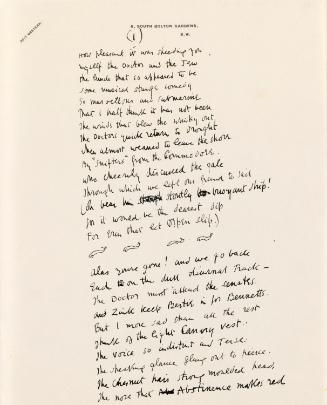 6, SOUTH BOLTON GARDENS,
S.W.
(1)
How pleasant it was sheeding you.
Myself the Doctor and the Jew
The lands that so appeared to be
Some musical stage comedy
So marvellous and submarine
That I half think it has not been
The winds that blew the whisky out
The Doctors quick return to drought
When almost weaned to leave the shore
By "snifters" from the Commodore.
Who cheerily discussed the gale
Through which we left our friend to sail
(Oh bear him stoutly buoyant ship!
For it would be the dearest dip
For Erin that let Orpen slip.)
Alas you're gone! and we go back
Each on the dull diurnal track –
The Doctor must attend the senates
and Zink keep Bertie in for Bennetts.
But I more sad than all the rest
Think of the light Canary vest.
The voice so indistinct and Terse.
The sneaking glance flung out to pierce.
The chestnut hair strong moulded head,
The nose that Abstinence makes red